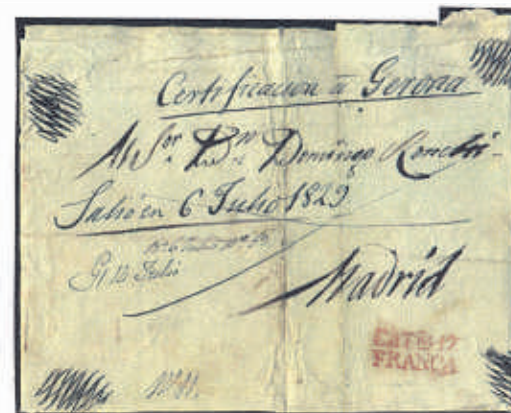 Certificacion à Gerona
Al Sor. Dn. Domingo Ronchi
Salió en 6 Julio 1829
Julio
Madrid
FRANCA